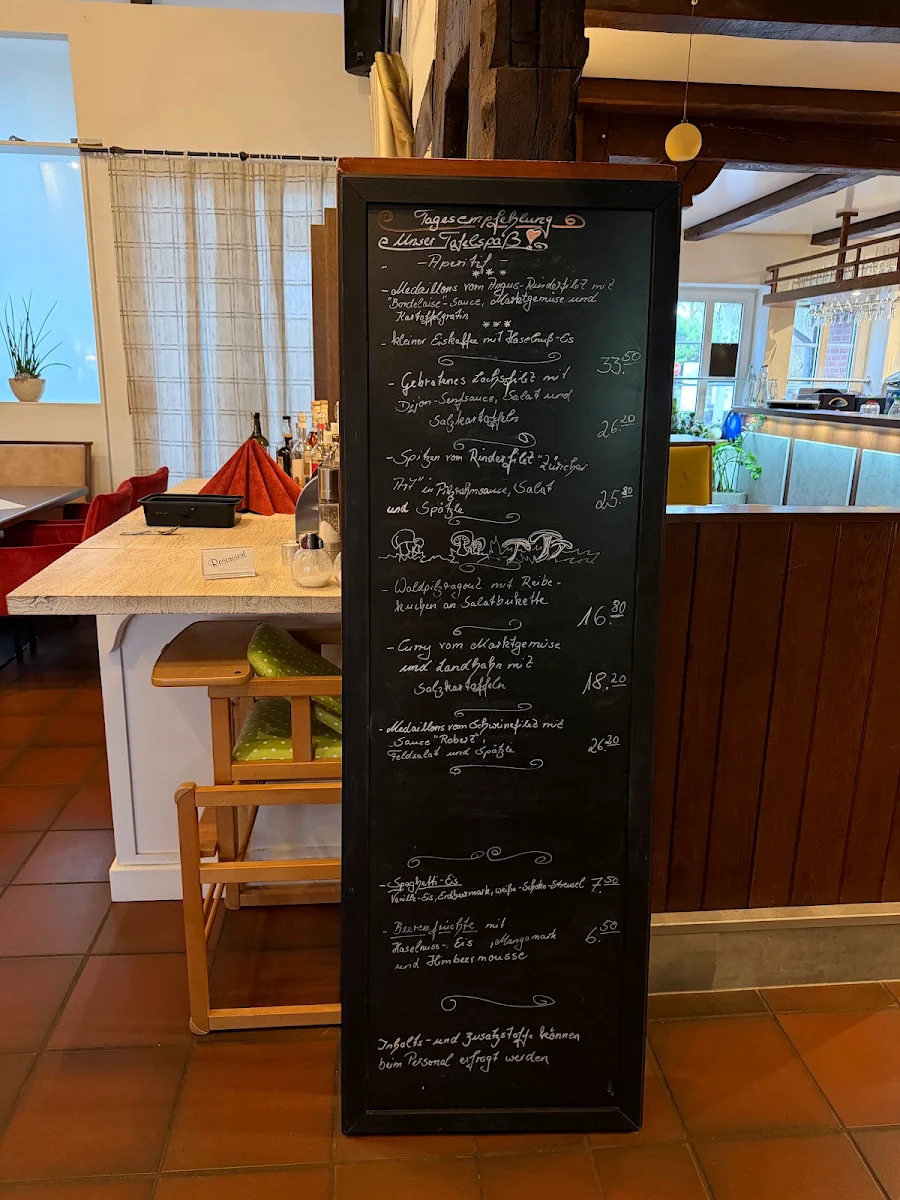 Tagesempfehlung
Unser Tafelspaß
- Aperitif -
***
- Medaillons vom Angus-Rinderfilet mit
"Bordelaise"-Sauce, Marktgemüse und
Kartoffelgratin
***
- kleiner Eiskaffee mit Haselnuß-Eis
33.50
- Gebratenes Lachsfilet mit
Dijon-Senfsauce, Salat und
Salzkartoffeln
26.20
- Spitzen vom Rinderfilet "Züricher
Art" in Pilzrahmsauce, Salat
und Spätzle
25.80
- Waldpilzragout mit Reibe-
kuchen an Salatbukette
16.80
- Curry vom Marktgemüse
und Landhahn mit
Salzkartoffeln
18.20
- Medaillons vom Schweinefilet mit
Sauce "Robert",
Feldsalat und Spätzle
26.20
- Spaghetti-Eis
Vanille-Eis, Erdbeermark, weiße-Schoko-Streusel 7.50
- Beerenfrüchte mit
Haselnuss-Eis, Mangomark
und Himbeermousse
6.50
Inhalts- und Zusatzstoffe können
beim Personal erfragt werden
Reserviert